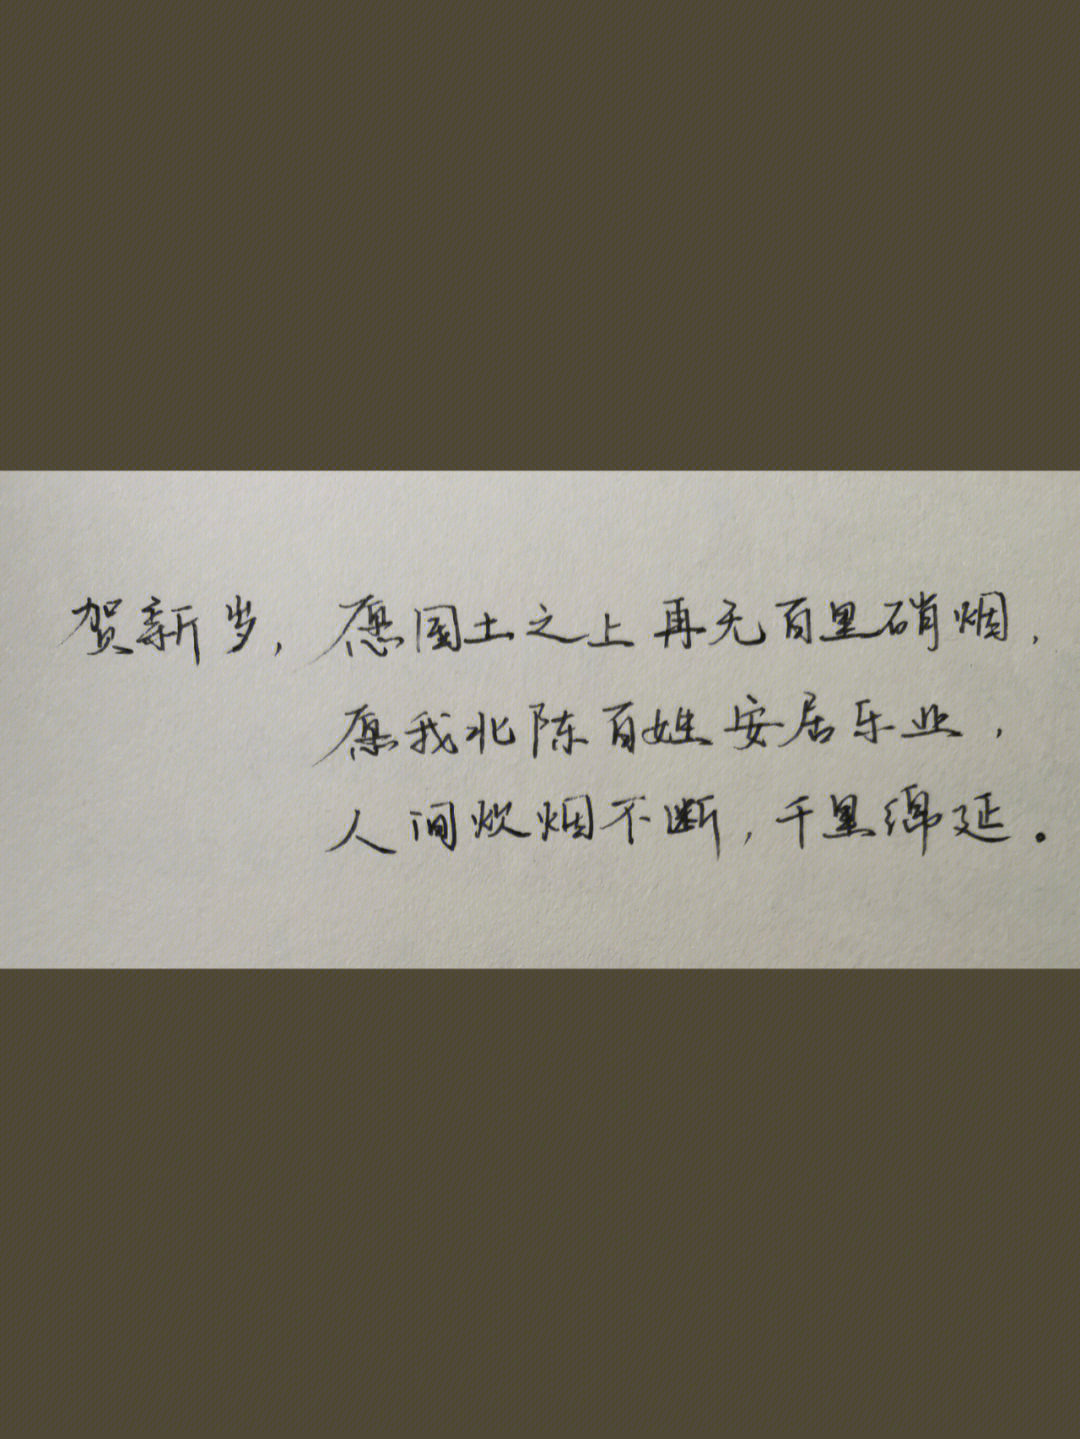 贺新岁，愿国土之上再无百里硝烟，
愿我北陈百姓安居乐业，
人间炊烟不断，千里绵延。